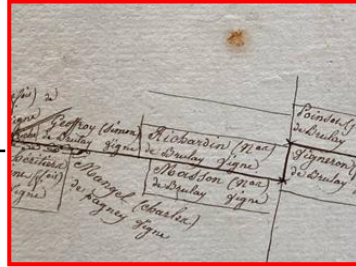 fois) de
igne
Geoffroy (Simon)
de Brulay Vigne
Richardin (Nas)
de Brulay Vigne
Poinsot
de Brulay
héritière
(fois)
Vigne
Mangel (Charles)
de Pagney Vigne
Masson (Nas)
de Brulay Vigne
Vigneron
de Brulay